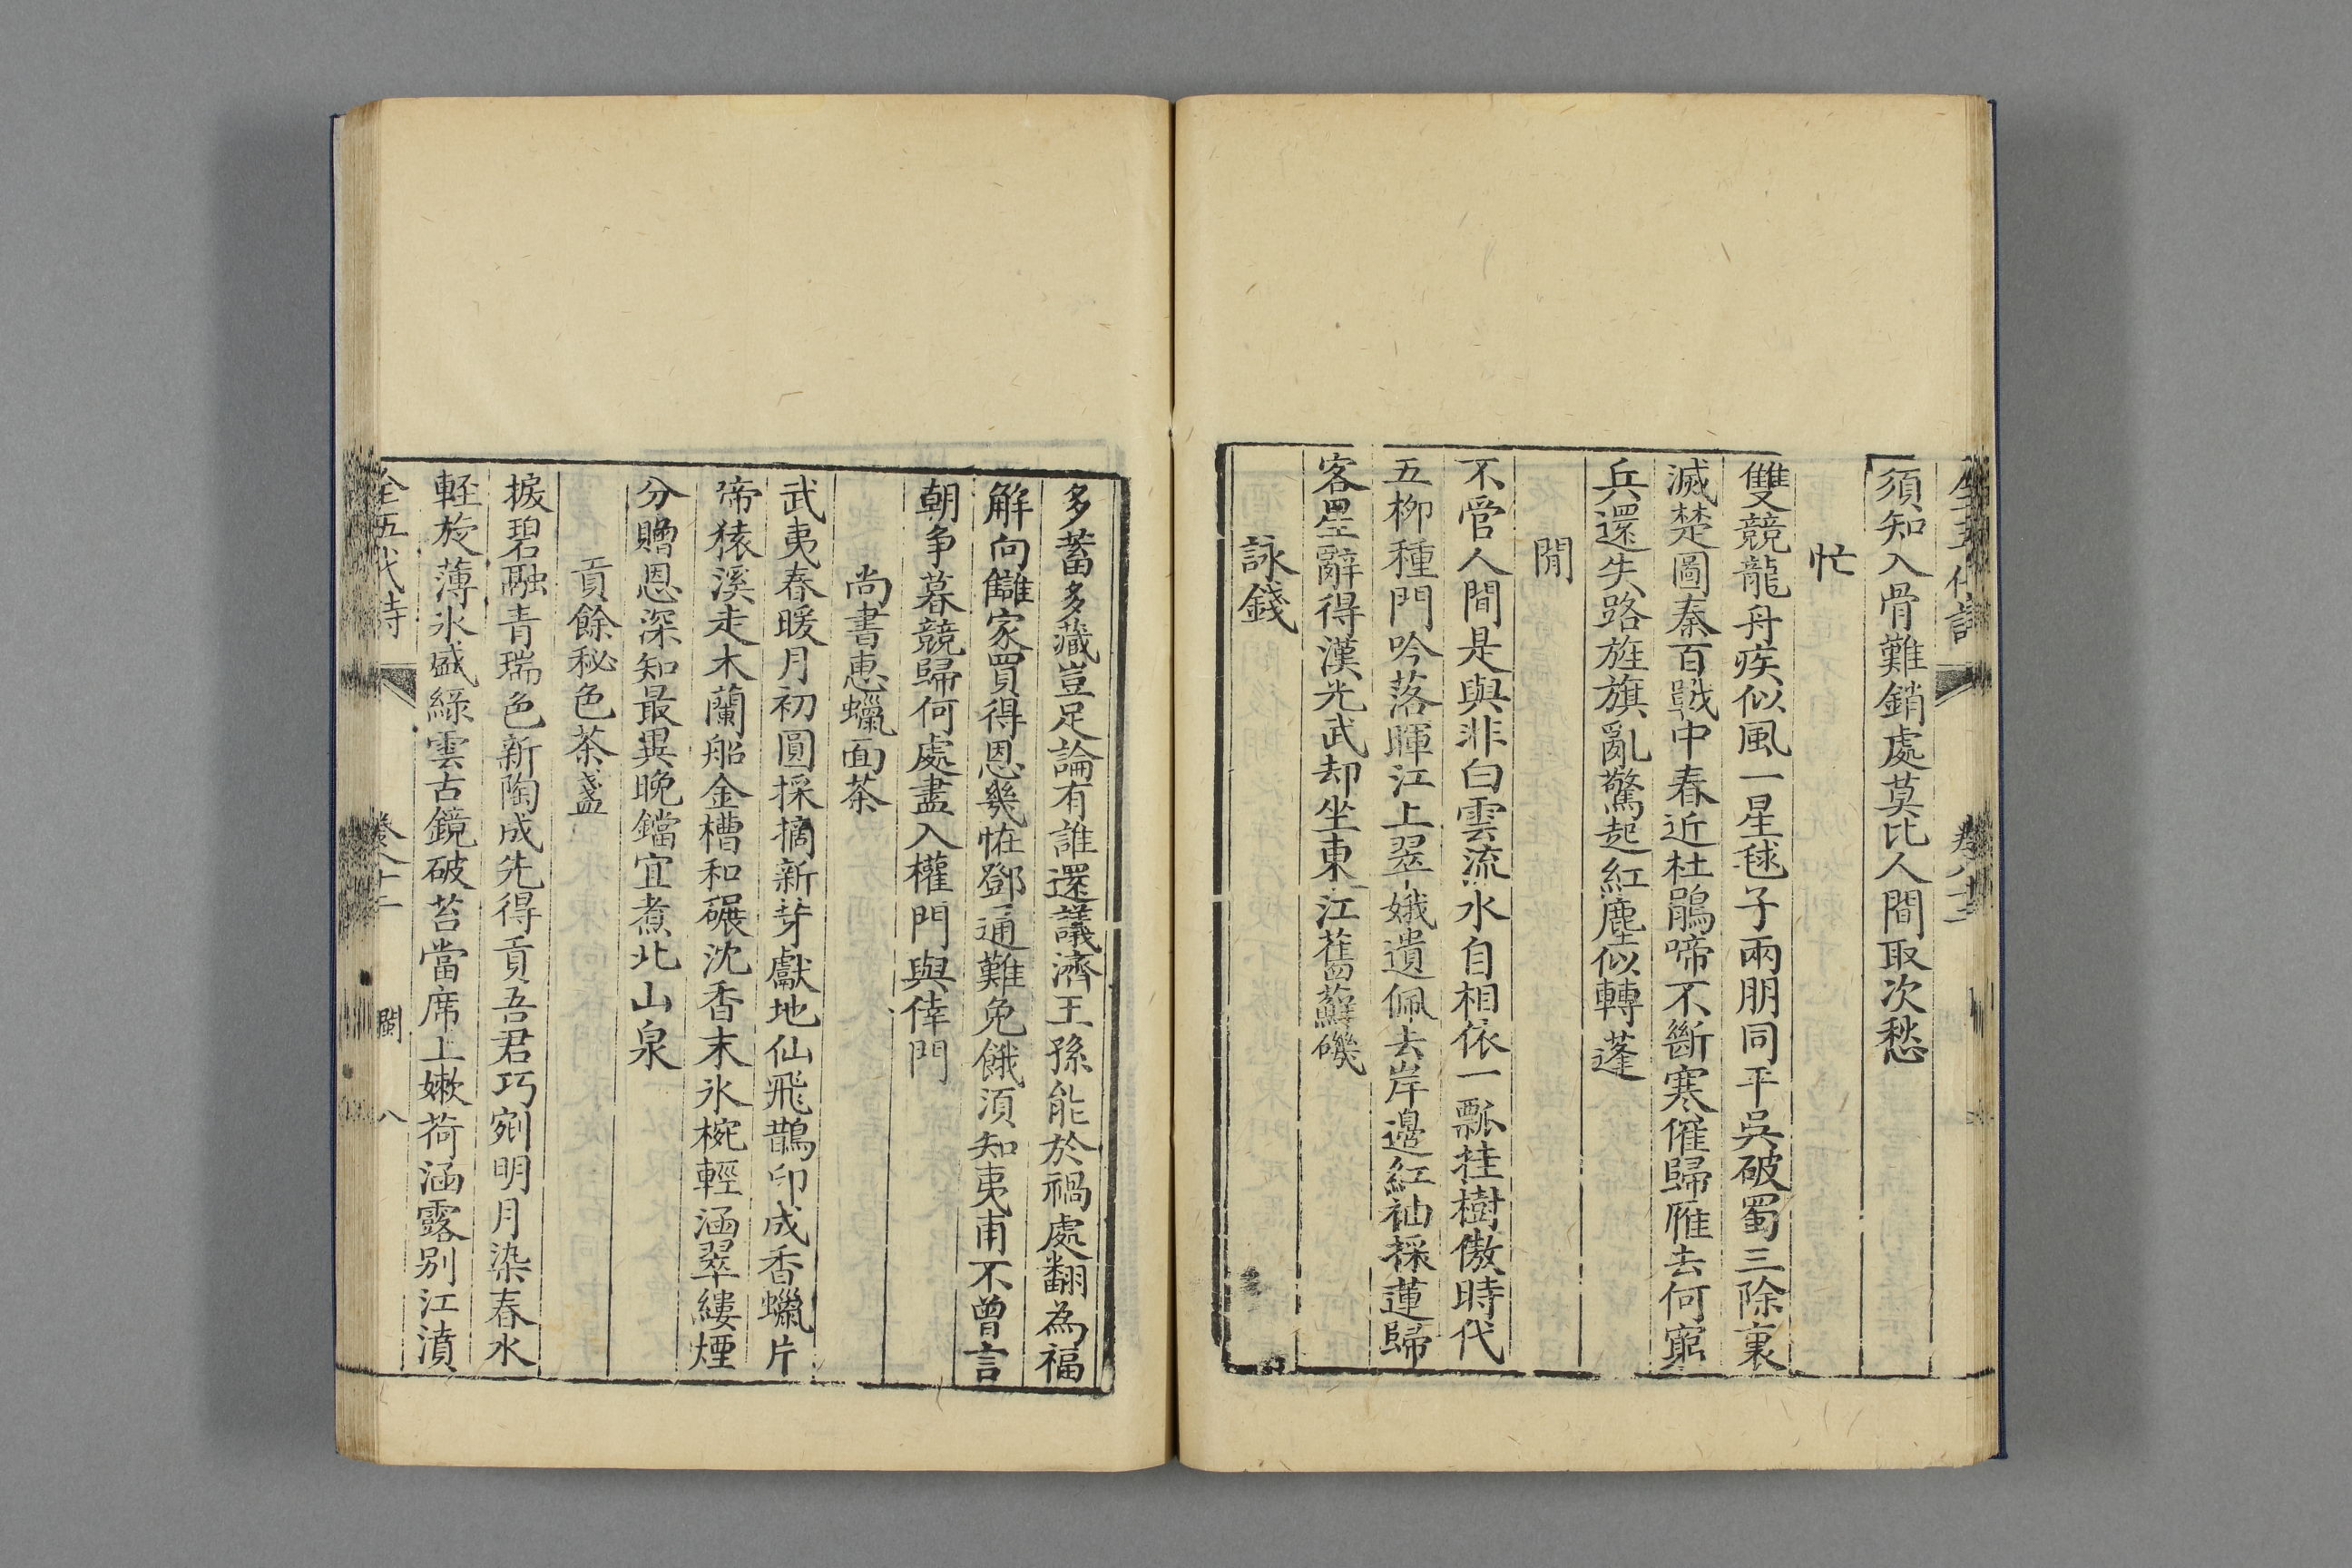 須知入骨難銷處莫比人間取次愁
忙
雙競龍舟疾似風一星毬子兩朋同平吳破蜀三除裏
滅楚圖秦百戰中春近杜鵑啼不斷寒催歸雁去何窮
兵還失路旌旗亂驚起紅塵似轉蓬
閒
不管人間是與非白雲流水自相依一瓢挂樹傲時代
五柳種門吟落暉江上翠娥遺佩去岸邊紅袖採蓮歸
客星辭得漢光武却坐東江舊蘚磯
詠錢
多蓄多藏豈足論有誰還議濟王孫能於禍處翻為福
解向讎家買得恩幾恠鄧通難免餓須知夷甫不曾言
朝争暮競歸何處盡入權門與倖門
尚書惠蠟面茶
武夷春暖月初圓採摘新芽獻地仙飛鵲印成香蠟片
啼猿溪走木蘭船金槽和碾沈香末氷椀輕涵翠縷煙
分贈恩深知最異晚鐺宜煮北山泉
貢餘秘色茶盞
捩碧融青瑞色新陶成先得貢吾君巧剜明月染春水
輕旋薄氷盛綠雲古鏡破苔當席上嫩荷涵露别江濆
全五代詩 卷八十二 閩 八